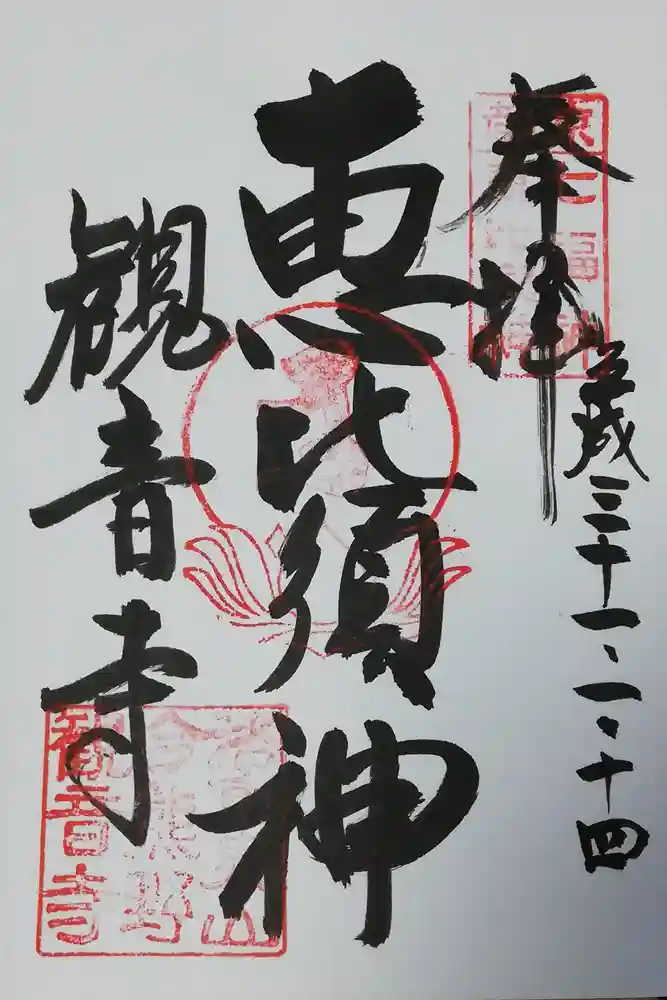 奉拝
平成三十一、一、十四
恵比須神
観音寺
今熊野
観音寺